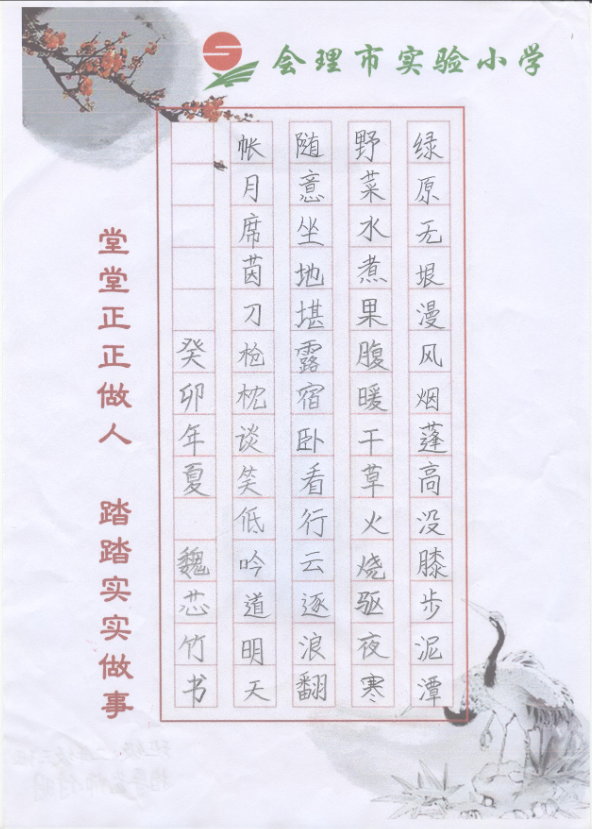 会理市实验小学
绿原无垠漫风烟蓬高没膝步泥潭
野菜水煮果腹暖干草火烧驱夜寒
随意坐地堪露宿卧看行云逐浪翻
帐月席茵刀枪枕谈笑低吟道明天
癸卯年夏 魏芯竹书
堂堂正正做人 踏踏实实做事